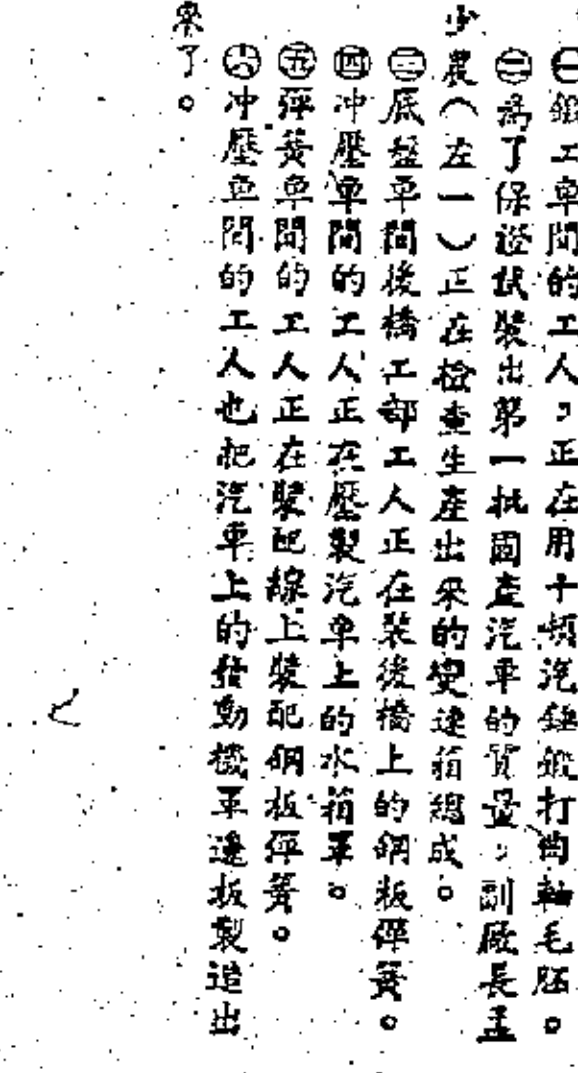 ㊀鍛工車間的工人，正在用十頓汽錘鍛打曲軸毛胚。
㊁爲了保證試裝出第一批國產汽車的質量，副廠長孟
少農（左一）正在檢查生產出來的變速箱總成。
㊂底盤車間後橋工部工人正在裝後橋上的鋼板彈簧。
㊃冲壓車間的工人正在壓製汽車上的水箱罩。
㊄彈簧車間的工人正在裝配線上裝配鋼板彈簧。
㊅冲壓車間的工人也把汽車上的發動機罩邊板製造出
來了。